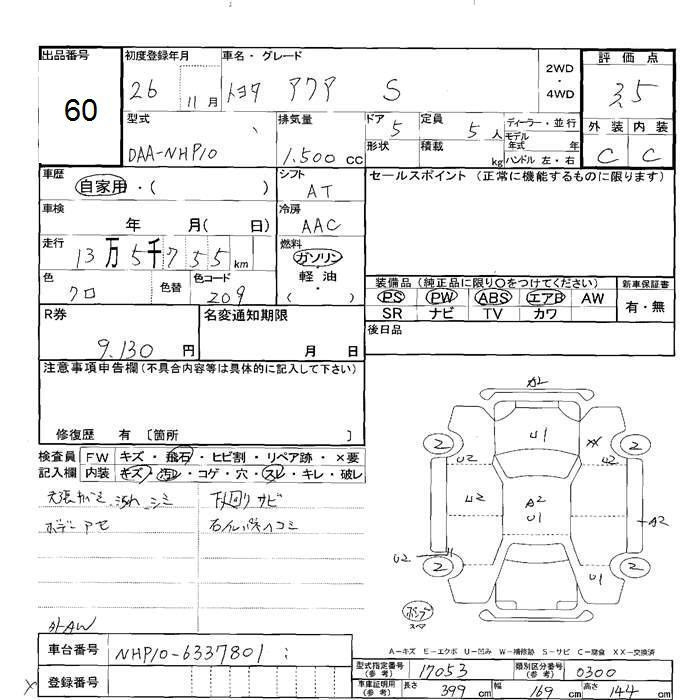 出品番号 初度登録年月 車名・グレード 2WD・4WD 評価点
60 26 11月 トヨタ アクア S 3.5
型式 排気量 ドア 5 定員 5人 ディーラー・並行 外装 内装
DAA-NHP10 1,500cc 形状 積載 kg モデル年式 年 ハンドル 左・右 C C
車歴 自家用・( ) シフト AT セールスポイント(正常に機能するものに限ります)
車検 年 月( 日) 冷房 AAC
走行 13万5千755km 燃料 ガソリン・軽油・( )
色 クロ 色替 色コード 209
装備品(純正品に限り○をつけてください) 新車保証書
PS PW ABS エアB AW 有・無
SR ナビ TV カワ
R券 9,130円 名変通知期限 月 日 後日品
注意事項申告欄(不具合内容等は具体的に記入して下さい)
修復歴 有 〔箇所 〕
検査員 FW キズ・飛石・ヒビ割・リペア跡・×要
記入欄 内装 キズ・汚レ・コゲ・穴・スレ・キレ・破レ
汚れ シミ 下回りサビ
ボデー アセ
外AW
A2
U1 XX
2 U2 U2 2
U2 A2 U1 A2
U2 2 U1 2
A-キズ E-エクボ U-凹み W-補修跡 S-サビ C-腐食 XX-交換済
車台番号 NHP10-6337801
型式指定番号(参考) 17053 類別区分番号(参考) 0300
登録番号
車庫証明用(参考) 長さ 399cm 幅 169cm 高さ 144cm